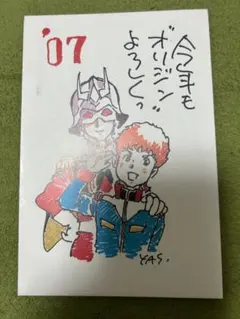 '07
今年も
オリジン
よろしくっ
YAS.